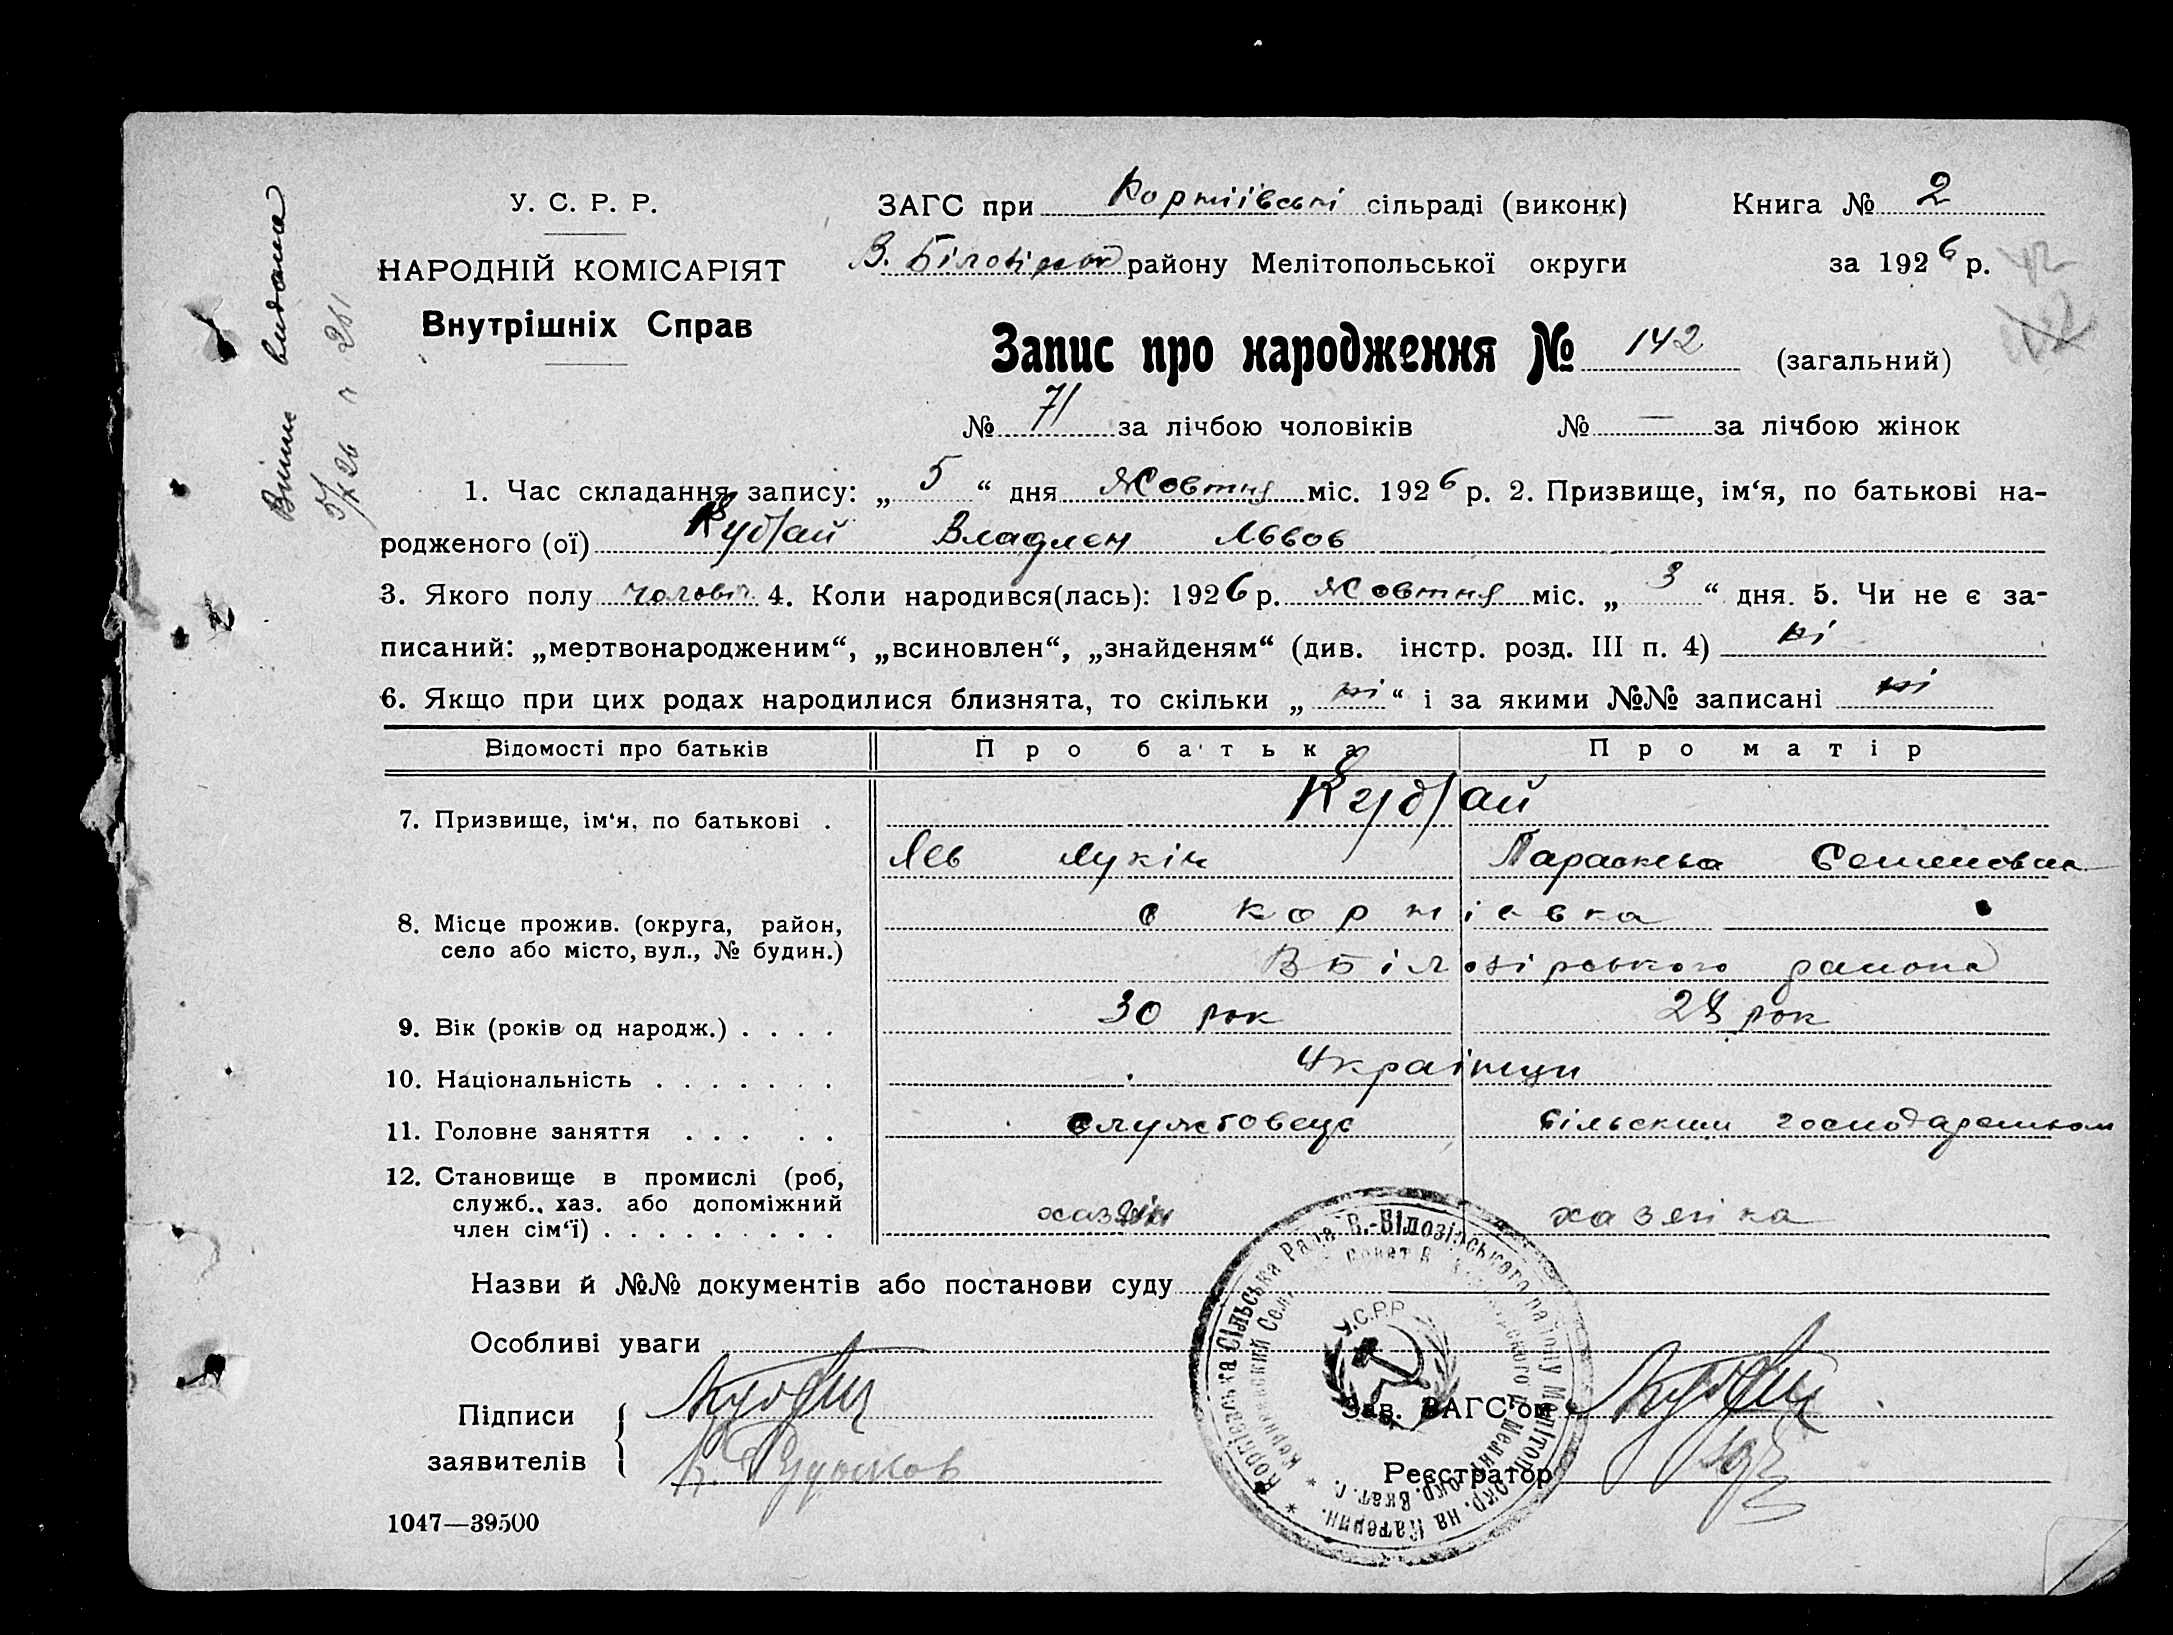 У. С. Р. Р.
НАРОДНІЙ КОМІСАРІЯТ
Внутрішніх Справ
ЗАГС при Корніївські сільраді (виконк) Книга № 2
В. Білозірськ району Мелітопольської округи за 1926 р.
42
142
Запис про народження № 142 (загальний)
№ 71 за лічбою чоловіків № — за лічбою жінок
Випис видана
1. Час складання запису: „ 5 “ дня Жовтня міс. 1926 р. 2. Призвище, ім‘я, по батькові на-
родженого (ої) Владлен Львов
3. Якого полу чоловіч 4. Коли народився(лась): 1926 р. Жовтня міс. „ 3 “ дня. 5. Чи не є за-
писаний: „мертвонародженим“, „всиновлен“, „знайденям“ (див. інстр. розд. III п. 4) ні
6. Якщо при цих родах народилися близнята, то скільки „ ні “ і за якими №№ записані ні
Відомості про батьків Про батька Про матір
7. Призвище, ім‘я, по батькові .
Лев Лукін Параскева Семеновна
8. Місце прожив. (округа, район, с Корніевка
село або місто, вул., № будин.) В Білозірського района
9. Вік (років од народж.) . . . . 30 рок 28 рок
10. Національність . . . . . . . Українци
11. Головне заняття . . . . . службовець сільским господарством
12. Становище в промислі (роб,
служб., хаз. або допоміжний хазяїн хазейка
член сім‘ї) . . . . . . . . .
Назви й №№ документів або постанови суду
Особливі уваги
Підписи
заявителів
Зав. ЗАГС‘ом
Реєстратор
* Корніевська Сільська Рада В.-Білозірського району Мелітоп. окр. на Катерин.
У.С.Р.Р.
1047—39500